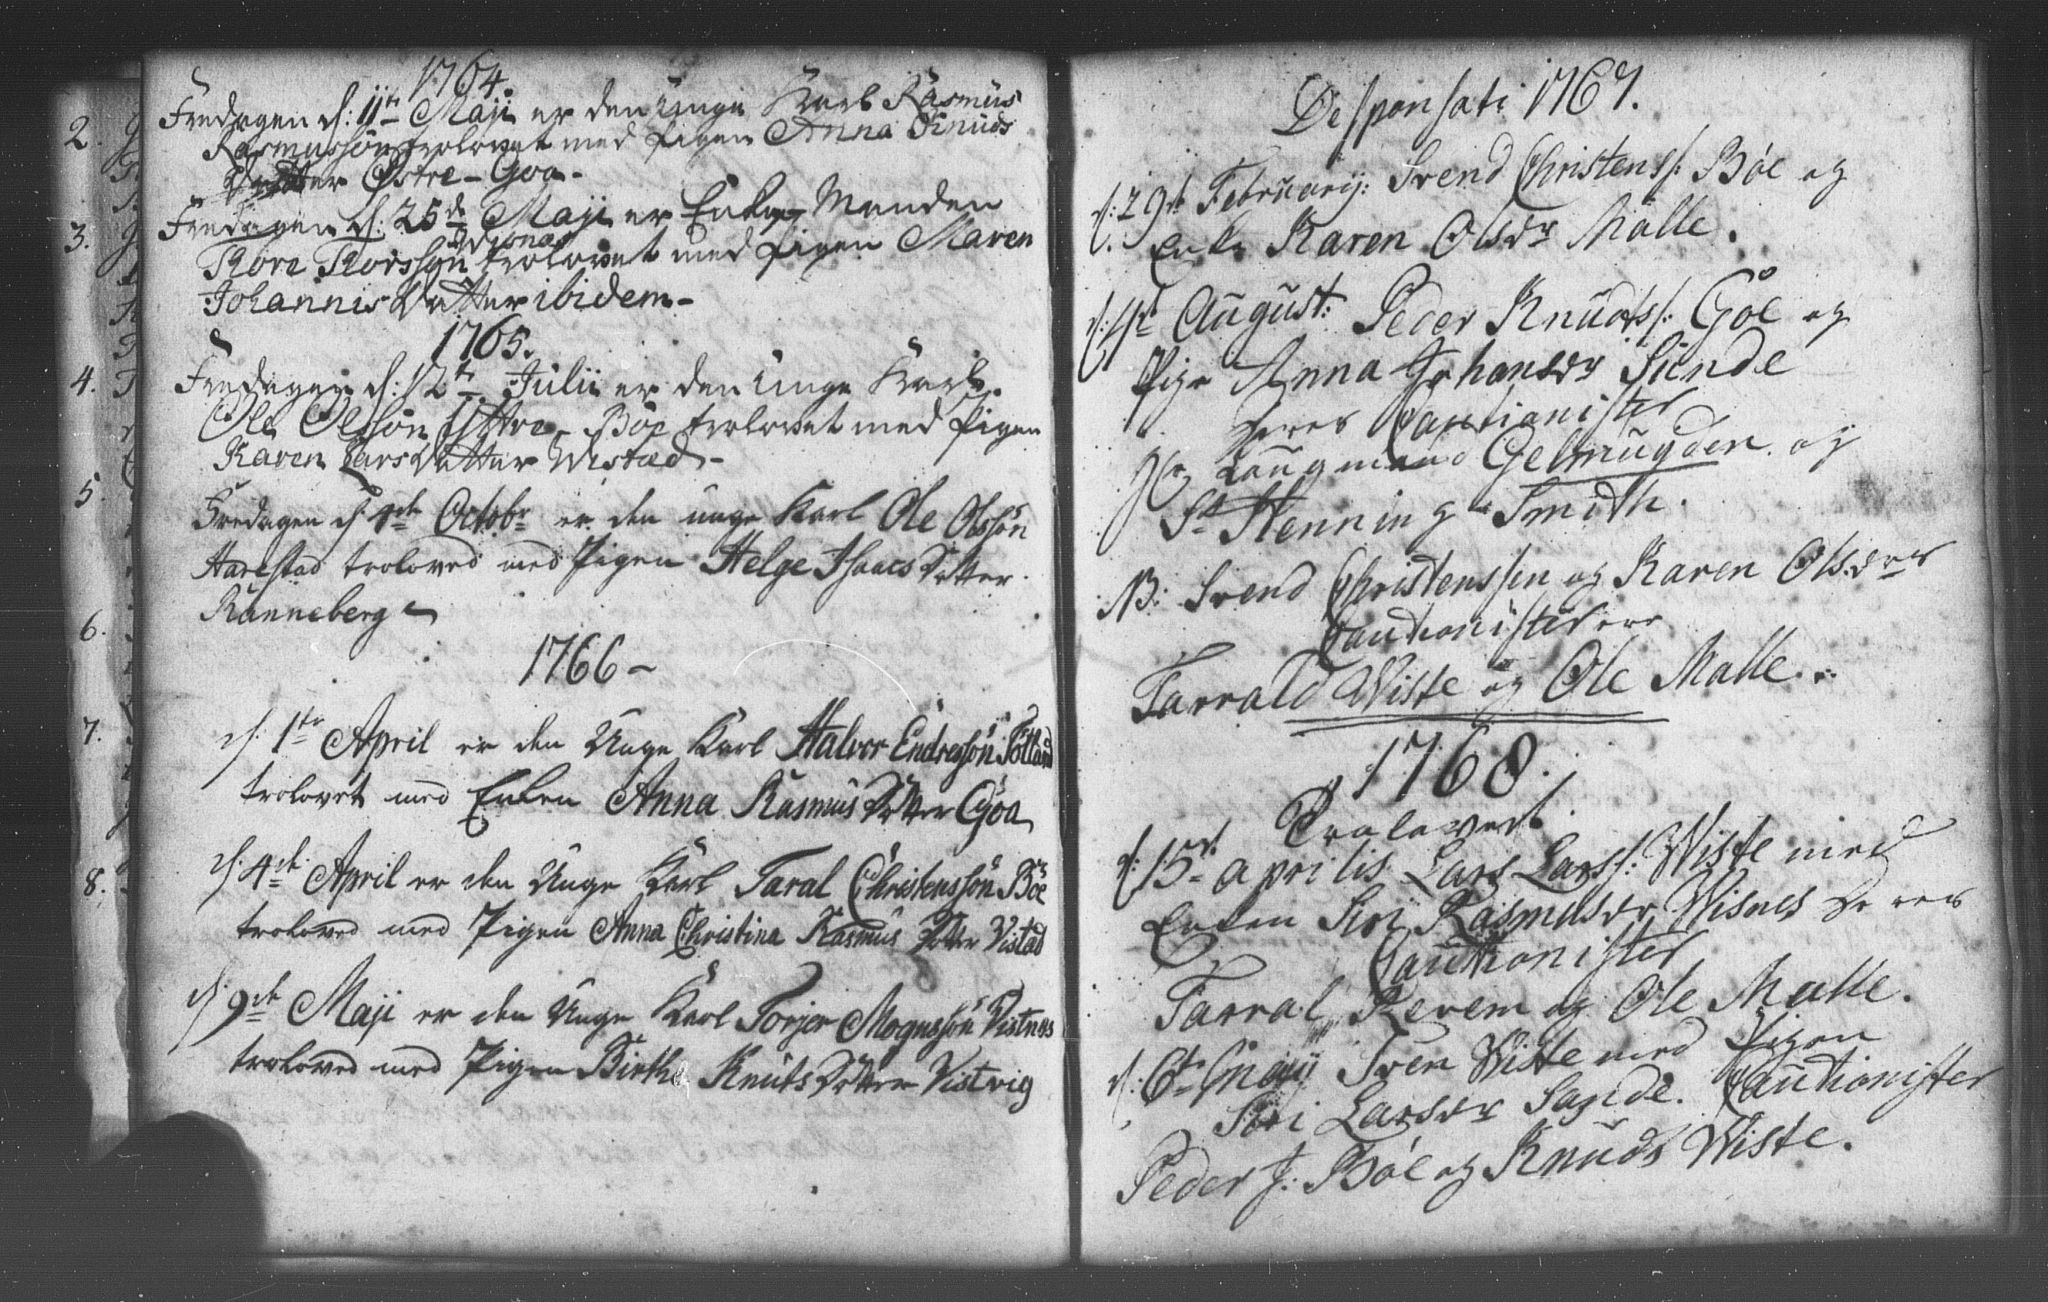 1764.
Fredagen d: 11te Maji er den Unge Karl Rasmus
Rasmussøn trolovet med Pigen Anna Knuds
Datter Østre-Goa-
Fredagen d: 25de Maji er Enke Manden
Tore Torsson trolovet med Pigen Maren
Johannis Datter ibidem-
1765.
Fredagen d: 12te Julii er den Unge Karl
Ole Olssøn Yttre-Bøe trolovet med Pigen
Karen Lars Datter Wistad-
Fredagen d: 4de Octobr er den unge Karl Ole Olssøn
Harestad troloved med Pigen Helge Isaacs Dotter
Rånneberg
1766-
d. 1te April er den Unge Karl Halvor Endressøn
trolovet med Enken Anna Rasmus Dotter Goa
d. 4de April er den Unge Karl Taral Christenssøn Bøe
troloved med Pigen Anna Christina Rasmus Dotter Vistad
d. 9de Maji er den Unge Karl Torjer Mognssøn Vistnes
troloved med Pigen Birthe Knuts Dotter Vistvig
2.
3.
4.
5.
6.
7.
8.
Desponsati 1767.
d: 29de Februarij: Svend Christenss: Bøe og
Enke Karen Olsdr Malle.
d: 4de August: Peder Knudss: Goe og
Pige Anna Johansdr Sunde
Deres Cautionister
Hr Laugmand Gelmuyden og
Sr Henning Smidth.
NB: Svend Christenssen og Karen Olsdrs
Cautionister ere
Tarrald Wiste og Ole Malle.
1768.
Trolovet.
d: 15de Aprilis Lars Larss: Wiste med
Enken Siri Rasmusdr Wisnes Deres
Cautionister
Tarral Revem og Ole Malle.
d: 6te Maij Sven Wiste med Pigen
Siri Larsdr Sande. Cautionister
Peder J: Bøe og Knuds Wiste.